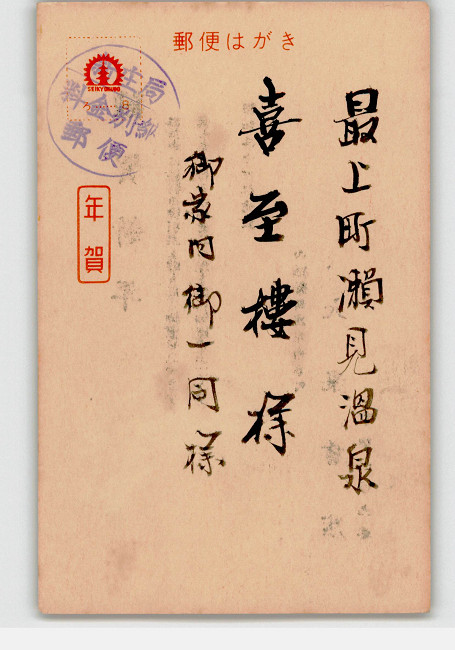 郵便はがき
SEIKYOKUDO
料金別納
郵便
年賀
最上町瀬見温泉
喜至樓様
御家内御一同様